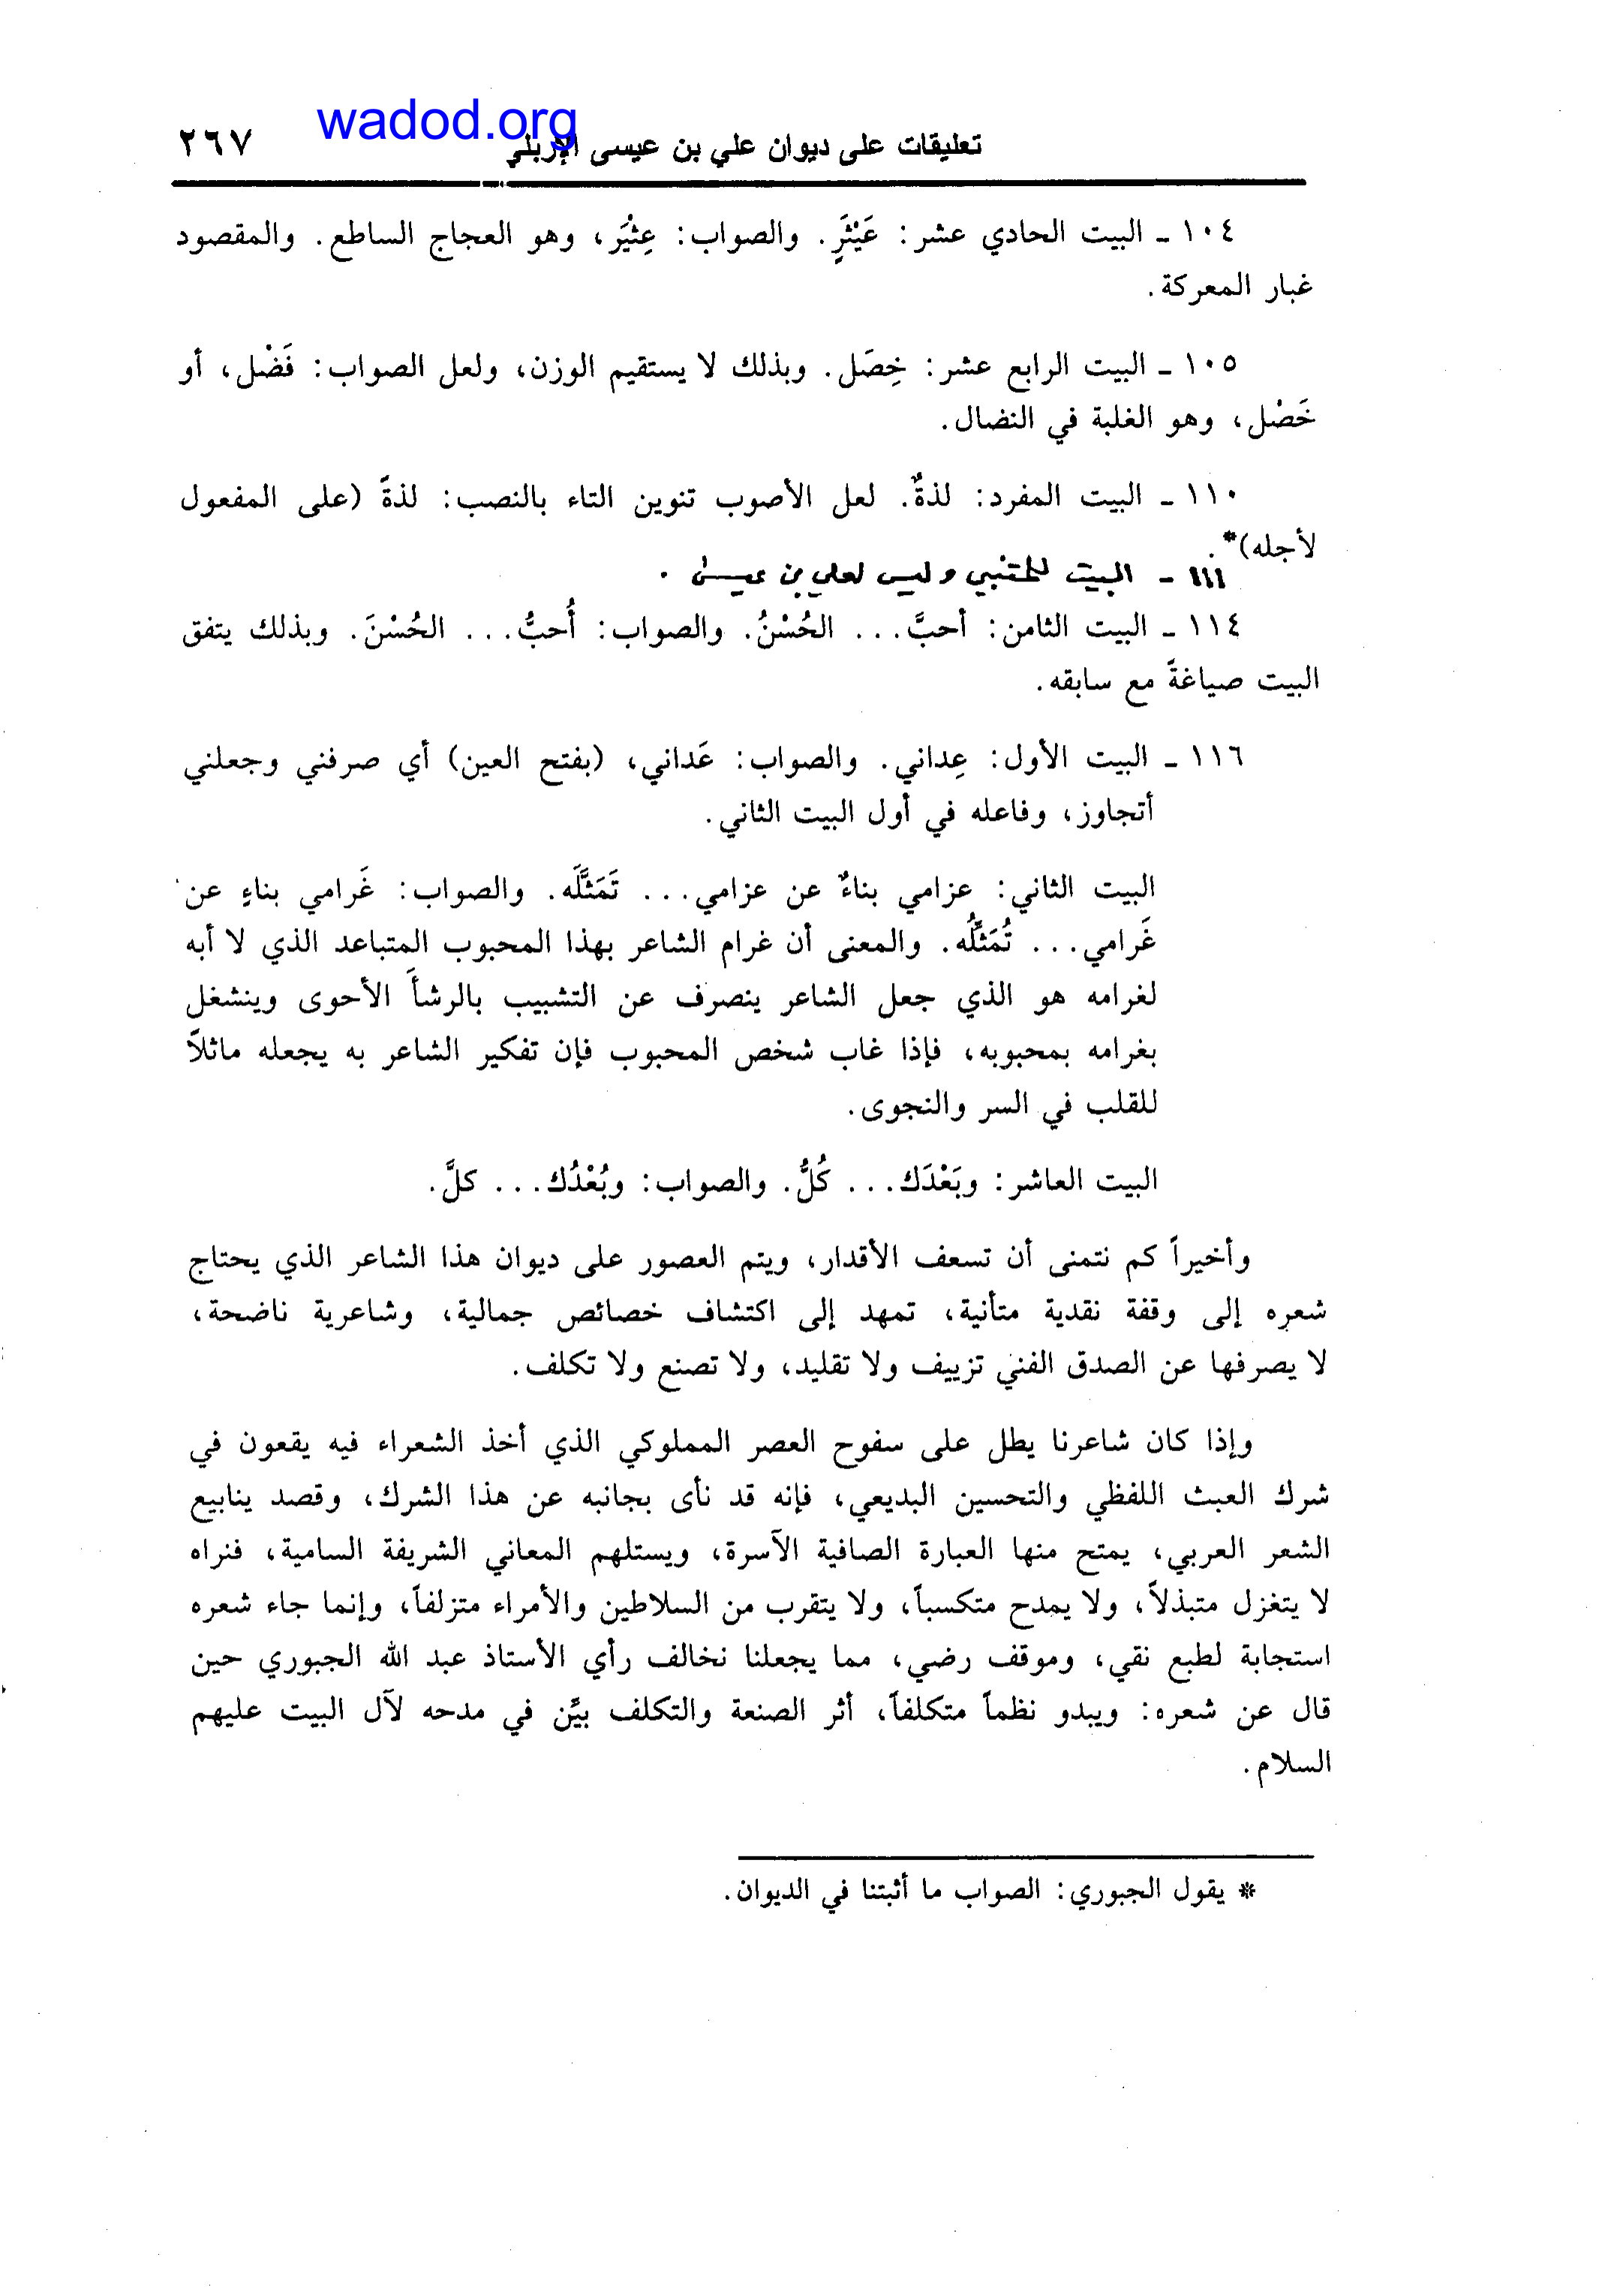 wadod.org
تعليقات على ديوان علي بن عيسى الإربلي ٢٦٧
١٠٤ ـ البيت الحادي عشر: عَيْثَرٍ. والصواب: عِثْيَر، وهو العجاج الساطع. والمقصود
غبار المعركة.
١٠٥ ـ البيت الرابع عشر: خِصَل. وبذلك لا يستقيم الوزن، ولعل الصواب: فَضْل، أو
خَصْل، وهو الغلبة في النضال.
١١٠ ـ البيت المفرد: لذةٌ. لعل الأصوب تنوين التاء بالنصب: لذةً (على المفعول
لأجله)*.
١١١ - البيت للمتنبي وليس لعلي بن عيسى .
١١٤ ـ البيت الثامن: أحبَّ... الحُسْنُ. والصواب: أُحبُّ... الحُسْنَ. وبذلك يتفق
البيت صياغةً مع سابقه.
١١٦ ـ البيت الأول: عِداني. والصواب: عَداني، (بفتح العين) أي صرفني وجعلني
أتجاوز، وفاعله في أول البيت الثاني.
البيت الثاني: عزامي بناءٌ عن عزامي... تَمَثَّلَه. والصواب: غَرامي بناءٍ عن
غَرامي... تُمَثِّلُه. والمعنى أن غرام الشاعر بهذا المحبوب المتباعد الذي لا أبه
لغرامه هو الذي جعل الشاعر ينصرف عن التشبيب بالرشأَ الأحوى وينشغل
بغرامه بمحبوبه، فإذا غاب شخص المحبوب فإن تفكير الشاعر به يجعله ماثلاً
للقلب في السر والنجوى.
البيت العاشر: وبَعْدَك... كُلُّ. والصواب: وبُعْدُك... كلَّ.
وأخيراً كم نتمنى أن تسعف الأقدار، ويتم العصور على ديوان هذا الشاعر الذي يحتاج
شعره إلى وقفة نقدية متأنية، تمهد إلى اكتشاف خصائص جمالية، وشاعرية ناضحة،
لا يصرفها عن الصدق الفني تزييف ولا تقليد، ولا تصنع ولا تكلف.
وإذا كان شاعرنا يطل على سفوح العصر المملوكي الذي أخذ الشعراء فيه يقعون في
شرك العبث اللفظي والتحسين البديعي، فإنه قد نأى بجانبه عن هذا الشرك، وقصد ينابيع
الشعر العربي، يمتح منها العبارة الصافية الآسرة، ويستلهم المعاني الشريفة السامية، فنراه
لا يتغزل متبذلاً، ولا يمدح متكسباً، ولا يتقرب من السلاطين والأمراء متزلفاً، وإنما جاء شعره
استجابة لطبع نقي، وموقف رضي، مما يجعلنا نخالف رأي الأستاذ عبد الله الجبوري حين
قال عن شعره: ويبدو نظماً متكلفاً، أثر الصنعة والتكلف بيِّن في مدحه لآل البيت عليهم
السلام.
* يقول الجبوري: الصواب ما أثبتنا في الديوان.